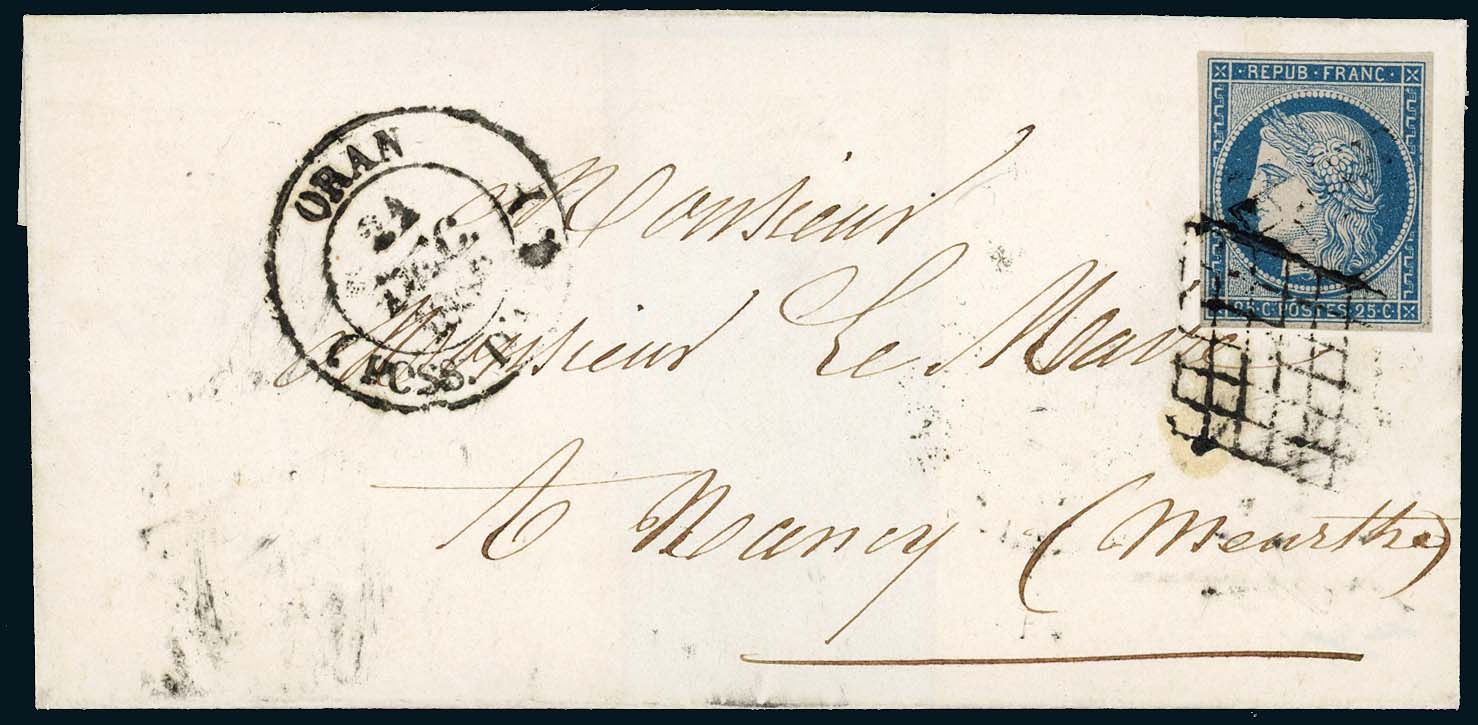 REPUB · FRANC ·
25 · C · POSTES · 25 · C ·
ORAN
24
DEC.
POSS.
Monsieur
Monsieur Le Maire
à Nancy (Meurthe)